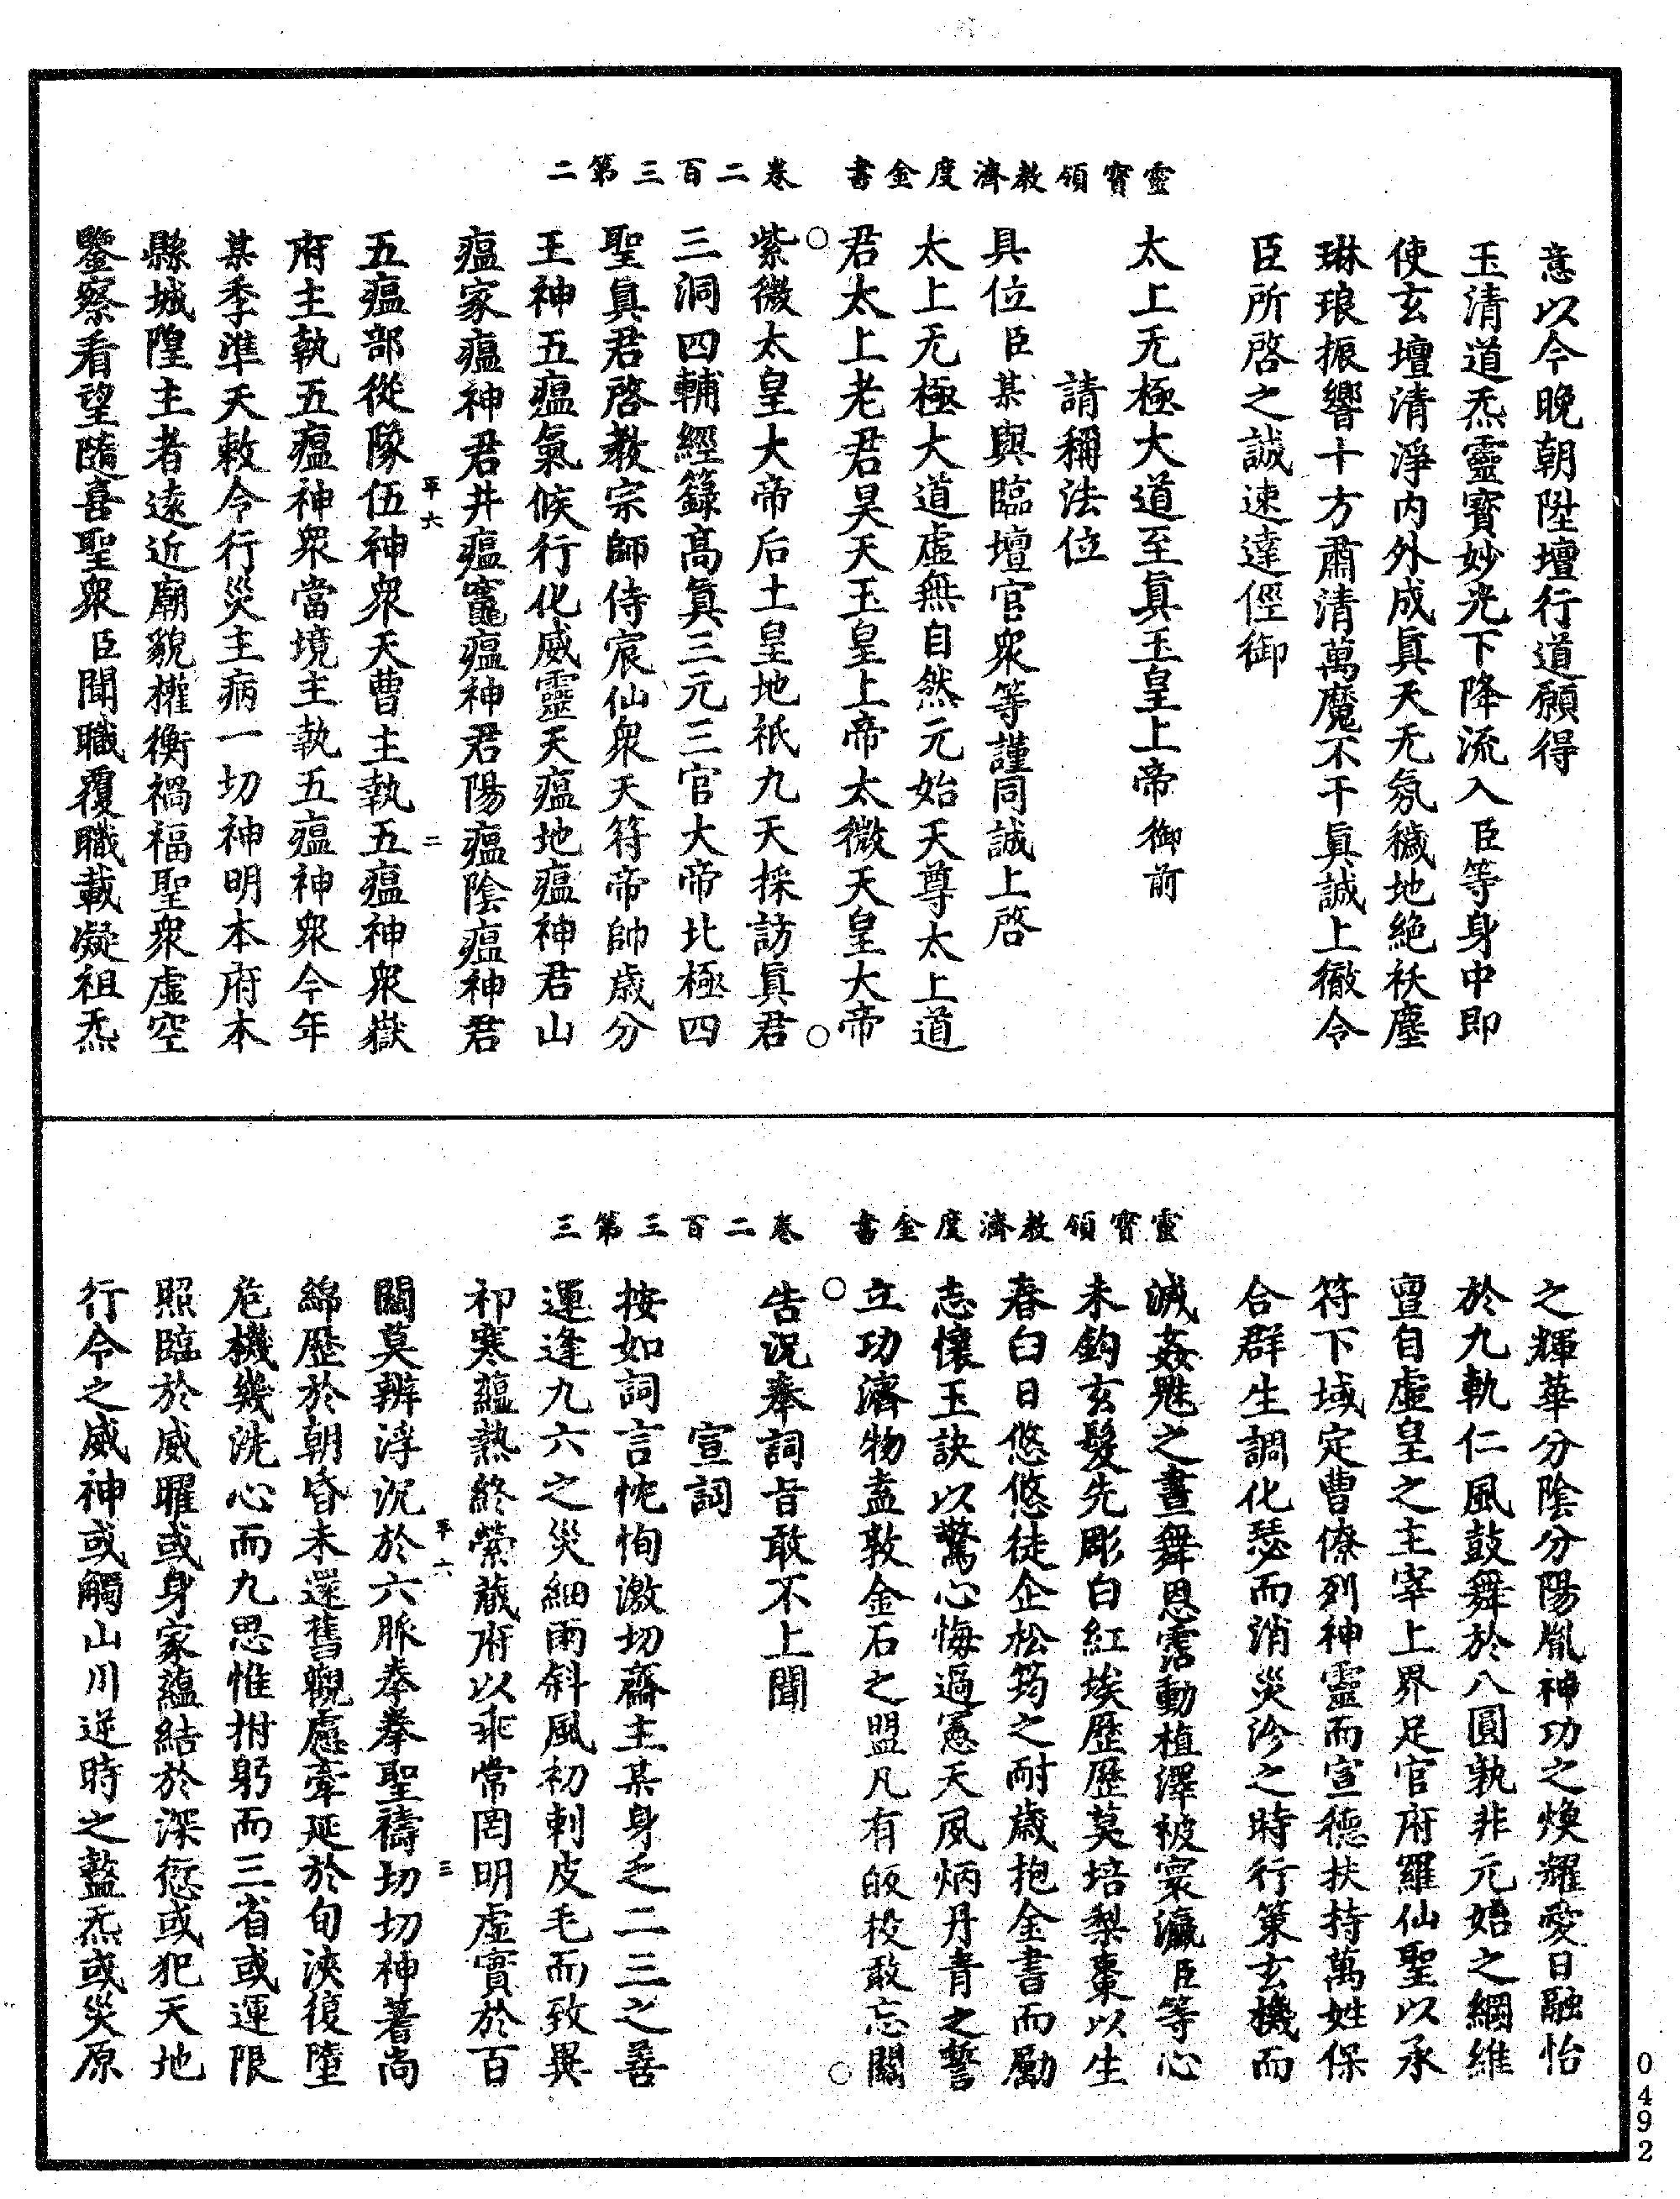 靈寶領教濟度金書　卷二百三第二
意以今晚朝陞壇行道願得
玉清道炁靈寶妙光下降流入臣等身中即
使玄壇清淨內外成眞天无氛穢地絕袄塵
琳琅振響十方肅清萬魔不干眞誠上徹令
臣所啓之誠速達徑御
太上无極大道至眞玉皇上帝御前
請稱法位
具位臣某與臨壇官衆等謹同誠上啓
太上无極大道虛無自然元始天尊太上道
君太上老君昊天玉皇上帝太微天皇大帝
紫微太皇大帝后土皇地祇九天採訪眞君
三洞四輔經籙高眞三元三官大帝北極四
聖眞君啓教宗師侍宸仙衆天符帝帥歲分
王神五瘟氣候行化威靈天瘟地瘟神君山
瘟家瘟神君井瘟竈瘟神君陽瘟陰瘟神君
五瘟部從隊伍神衆天曹主執五瘟神衆嶽
府主執五瘟神衆當境主執五瘟神衆今年
某季準天敕令行災主病一切神明本府本
縣城隍主者遠近廟貌權衡禍福聖衆虛空
鑒察看望隨喜聖衆臣聞職覆職載凝祖炁
平六　二
靈寶領教濟度金書　卷二百三第三
之輝華分陰分陽胤神功之煥耀愛日融怡
於九軌仁風鼓舞於八圓孰非元始之綱維
亶自虛皇之主宰上界足官府羅仙聖以承
符下域定曹僚列神靈而宣德扶持萬姓保
合群生調化瑟而消災沴之時行策玄機而
滅姦魁之晝舞恩霑動植澤被寰瀛臣等心
未鈎玄髮先彫白紅埃歷歷莫培梨棗以生
春白日悠悠徒企松筠之耐歲抱金書而勵
志懷玉訣以驚心悔過寃天夙炳丹青之誓
立功濟物盍敦金石之盟凡有皈投敢忘關
告況奉詞旨敢不上聞
宣詞
按如詞言忱恂激切齋主某身乏二三之善
運逢九六之災細雨斜風初刺皮毛而致異
祁寒蘊熱終縈藏府以乖常罔明虛實於百
關莫辨浮沉於六脈奉拳聖禱切切神蓍尚
綿歷於朝昏未還舊觀慮牽延於旬浹復墮
危機幾洗心而九思惟拊躬而三省或運限
照臨於威曜或身家蘊結於深愆或犯天地
行令之威神或觸山川逆時之盭炁或災原
平六　三
0492